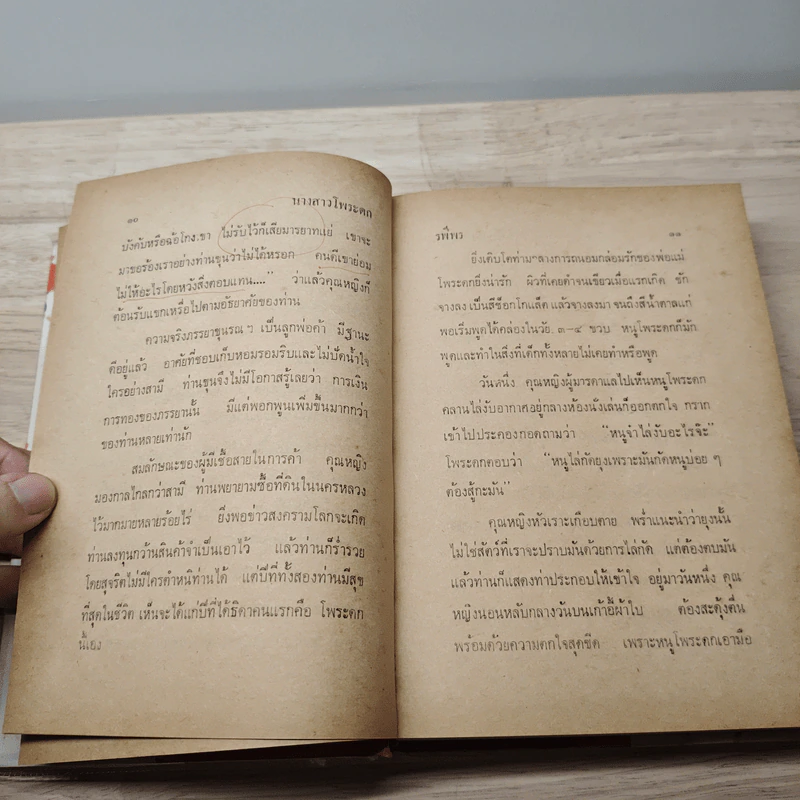 ๑๐
นางสาวโพระดก
บังคับหรือฉ้อโกง.ขา ไม่รับไว้ก็เสียมารยาทแย่ เขาจะ
มาขอร้องเราอย่างท่านขุนว่าไม่ได้หรอก คนดีเขาย่อม
ไม่ให้อะไรโดยหวังสิ่งตอบแทน....” ว่าแล้วคุณหญิงก็
ต้อนรับแขกเหรื่อไปตามอัธยาศัยของท่าน
ความจริงภรรยาขุนรณ ฯ เป็นลูกพ่อค้า มีฐานะ
ดีอยู่แล้ว อาศัยที่ชอบเก็บหอมรอมริบและไม่ปัดน้ำใจ
ใครอย่างสามี ท่านขุนจึงไม่มีโอกาสรู้เลยว่า การเงิน
การทองของภรรยานั้น มีแต่พอกพูนเพิ่มขึ้นมากกว่า
ของท่านหลายเท่านัก
สมลักษณะของผู้มีเชื้อสายในการค้า คุณหญิง
มองกาลไกลกว่าสามี ท่านพยายามซื้อที่ดินในนครหลวง
ไว้มากมายหลายร้อยไร่ ยิ่งพอข่าวสงครามโลกจะเกิด
ท่านลงทุนกว้านสินค้าจำเป็นเอาไว้ แล้วท่านก็ร่ำรวย
โดยสุจริตไม่มีใครตำหนิท่านได้ แต่ปีที่ทั้งสองท่านมีสุข
ที่สุดในชีวิต เห็นจะได้แก่ปีที่ได้ธิดาคนแรกคือ โพระดก
นี้เอง
รพีพร
๑๑
ยิ่งเติบโตท่ามกลางการถนอมกล่อมรักของพ่อแม่
โพระดกยิ่งน่ารัก ผิวที่เคยดำจนเขียวเมื่อแรกเกิด ชัก
จางลง เป็นสีช็อกโกแล็ต แล้วจางลงมา จนถึงสีน้ำตาลแก่
พอเริ่มพูดได้คล่องในวัย ๓-๔ ขวบ หนูโพระดกก็มัก
พูดและทำในสิ่งที่เด็กทั้งหลายไม่เคยทำหรือพูด
วันหนึ่ง คุณหญิงผู้มารดาแลไปเห็นหนูโพระดก
คลานไล่งับอากาศอยู่กลางห้องนั่งเล่นก็ออกตกใจ กราก
เข้าไปประคองกอดถามว่า “หนูจ๋าไล่งับอะไรจ๊ะ”
โพระดกตอบว่า “หนูไล่กัดยุงเพราะมันกัดหนูบ่อย ๆ
ต้องสู้กะมัน”
คุณหญิงหัวเราะเกือบตาย พร่ำแนะนำว่ายุงนั้น
ไม่ใช่สัตว์ที่เราจะปราบมันด้วยการไล่กัด แต่ต้องตบมัน
แล้วท่านก็แสดงท่าประกอบให้เข้าใจ อยู่มาวันหนึ่ง คุณ
หญิงนอนหลับกลางวันบนเก้าอี้ผ้าใบ ต้องสะดุ้งตื่น
พร้อมด้วยความตกใจสุดขีด เพราะหนูโพระดกเอามือ